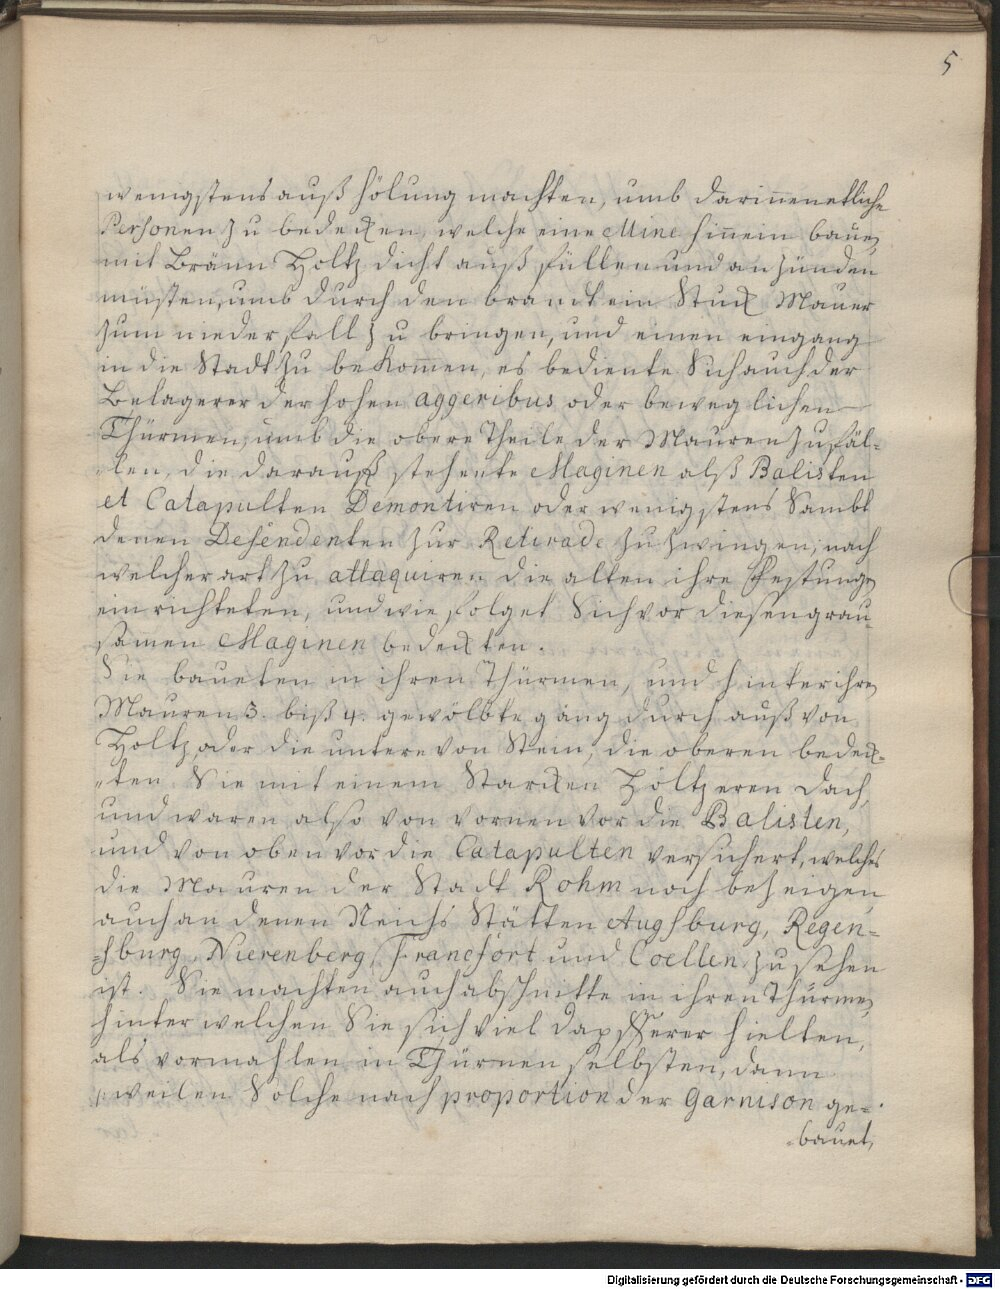 5
wenigstens außhölung machten, umb darinnen etliche
Personen zu bedecken, welche eine Mine hinein bauen,
mit Bränn Holtz dicht außfüllen und anzünden
müsten, umb durch den brandt ein Stuck Mauer
zum niederfall zu bringen, und einen eingang
in die Stadt zu bekom̅en, es bediente Sich auch der
Belagerer der hohen aggeribus oder beweglichen
Thürmen, umb die obere Theile der Mauren zu fäl-
-len, die darauf stehente Maginen alß Balisten
et Catapulten Demontiren oder wenigstens Sambt
denen Defendenten zur Retirade zu zwingen, nach
welcher art zu attaquiren die alten ihre Festungen
einrichteten, und wie folget Sich vor diesen grau-
samen Maginen bedeckten.
Sie baueten in ihren Thürmen, und hinter ihren
Mauren 3. biß 4. gewölbte gäng durch auß von
Holtz, oder die untere von Stein, die oberen bedeck-
-ten Sie mit einem Starcken Höltzeren Dach,
und waren also von vornen vor die Balisten,
und von oben vor die Catapulten versichert, welches
die Mauren der Stadt Rohm noch bezeigen,
auch an denen Reichs Stätten Augsburg, Regen-
-sburg, Nierenberg, Francfort und Coellen zu sehen
ist. Sie machten auch abschnitte in ihren Thürmen,
hinter welchen Sie sich viel dapfferer hielten,
als vormahlen in Thürnen selbsten, dann
weilen Solche nach proportion der Garnison ge-
-bauet,
Digitalisierung gefördert durch die Deutsche Forschungsgemeinschaft - DFG